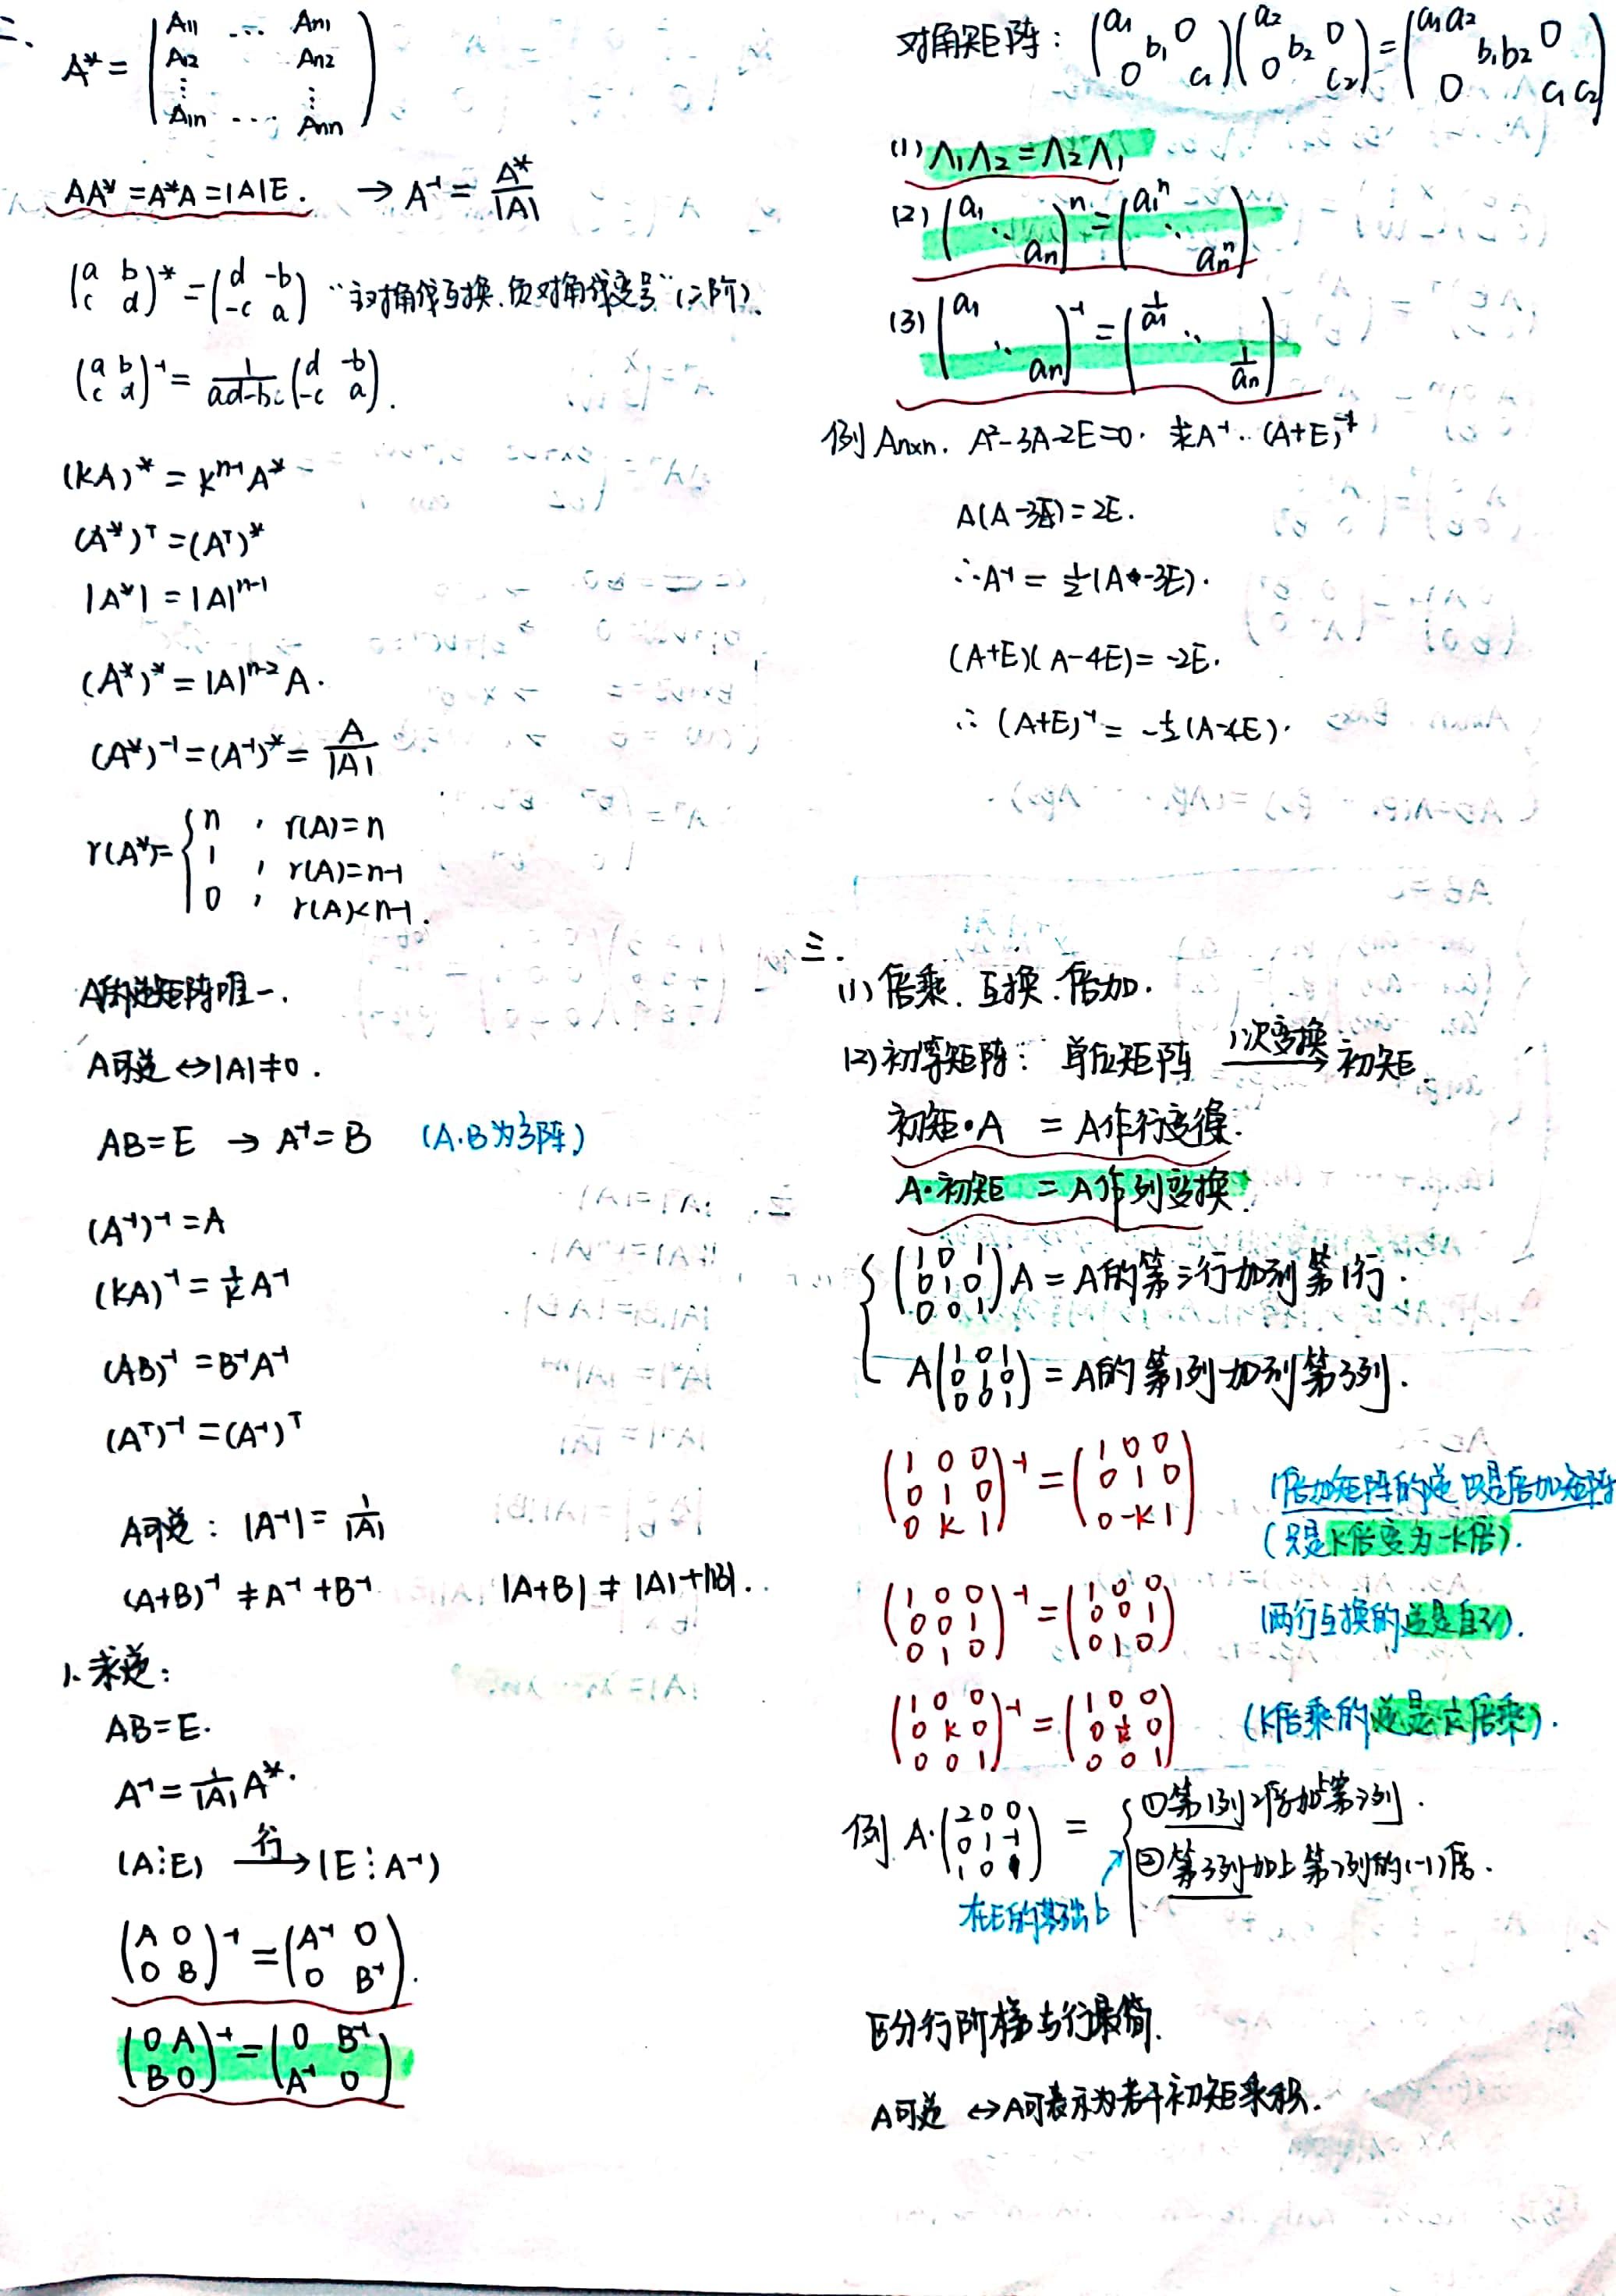 二、
A* = (A11 ... An1
A12 An2
⋮ ⋮
A1n ... Ann)
AA* = A*A = |A|E. → A⁻¹ = A*/|A|
(a b
c d)* = (d -b
-c a) “主对角线互换,负对角线变号”(二阶).
(a b
c d)⁻¹ = 1/(ad-bc) (d -b
-c a).
(kA)* = kⁿ⁻¹A*
(A*)ᵀ = (Aᵀ)*
|A*| = |A|ⁿ⁻¹
(A*)* = |A|ⁿ⁻²A.
(A*)⁻¹ = (A⁻¹)* = A/|A|
r(A*) = { n , r(A)=n
1 , r(A)=n-1
0 , r(A)<n-1.
A的逆矩阵唯一.
A可逆 ⇔ |A|≠0.
AB=E → A⁻¹=B (A.B为方阵)
(A⁻¹)⁻¹ = A
(kA)⁻¹ = 1/k A⁻¹
(AB)⁻¹ = B⁻¹A⁻¹
(Aᵀ)⁻¹ = (A⁻¹)ᵀ
A可逆: |A⁻¹| = 1/|A|
(A+B)⁻¹ ≠ A⁻¹+B⁻¹ |A+B| ≠ |A|+|B|.
1. 求逆:
AB=E.
A⁻¹ = 1/|A| A*.
(A⋮E) 行→ (E⋮A⁻¹)
(A 0
0 B)⁻¹ = (A⁻¹ 0
0 B⁻¹).
(0 A
B 0)⁻¹ = (0 B⁻¹
A⁻¹ 0)
对角矩阵: (a1 b1 0
0 c1)(a2 b2 0
0 c2) = (a1a2 b1b2 0
0 c1c2)
(1) Λ1Λ2 = Λ2Λ1
(2) (a1 ⋱ an)ⁿ = (a1ⁿ ⋱ anⁿ)
(3) (a1 ⋱ an)⁻¹ = (1/a1 ⋱ 1/an)
例 An×n. A²-3A-2E=0. 求A⁻¹.. (A+E)⁻¹
A(A-3E)=2E.
∴A⁻¹ = 1/2(A-3E).
(A+E)(A-4E) = -2E.
∴ (A+E)⁻¹ = -1/2(A-4E).
三.
(1) 倍乘. 互换. 倍加.
(2) 初等矩阵: 单位矩阵 1次变换→ 初矩.
初矩·A = A作行变换.
A·初矩 = A作列变换.
{ (1 0 1
0 1 0
0 0 1)A = A的第3行加到第1行.
A(1 0 1
0 1 0
0 0 1) = A的第1列加到第3列.
(1 0 0
0 1 0
0 k 1)⁻¹ = (1 0 0
0 1 0
0 -k 1)
(倍加矩阵的逆是倍加矩阵
(只是k倍变为-k倍).
(1 0 0
0 0 1
0 1 0)⁻¹ = (1 0 0
0 0 1
0 1 0) (两行互换的逆是自己).
(1 0 0
0 k 0
0 0 1)⁻¹ = (1 0 0
0 1/k 0
0 0 1) (k倍乘的逆是1/k倍乘).
例 A·(2 0 0
0 1 -1
1 0 1) = { ①第1列2倍加上第3列.
②第3列加上第2列的(-1)倍.
在E的基础上
区分行阶梯与行最简.
A可逆 ⇔ A可表示为若干初矩乘积.